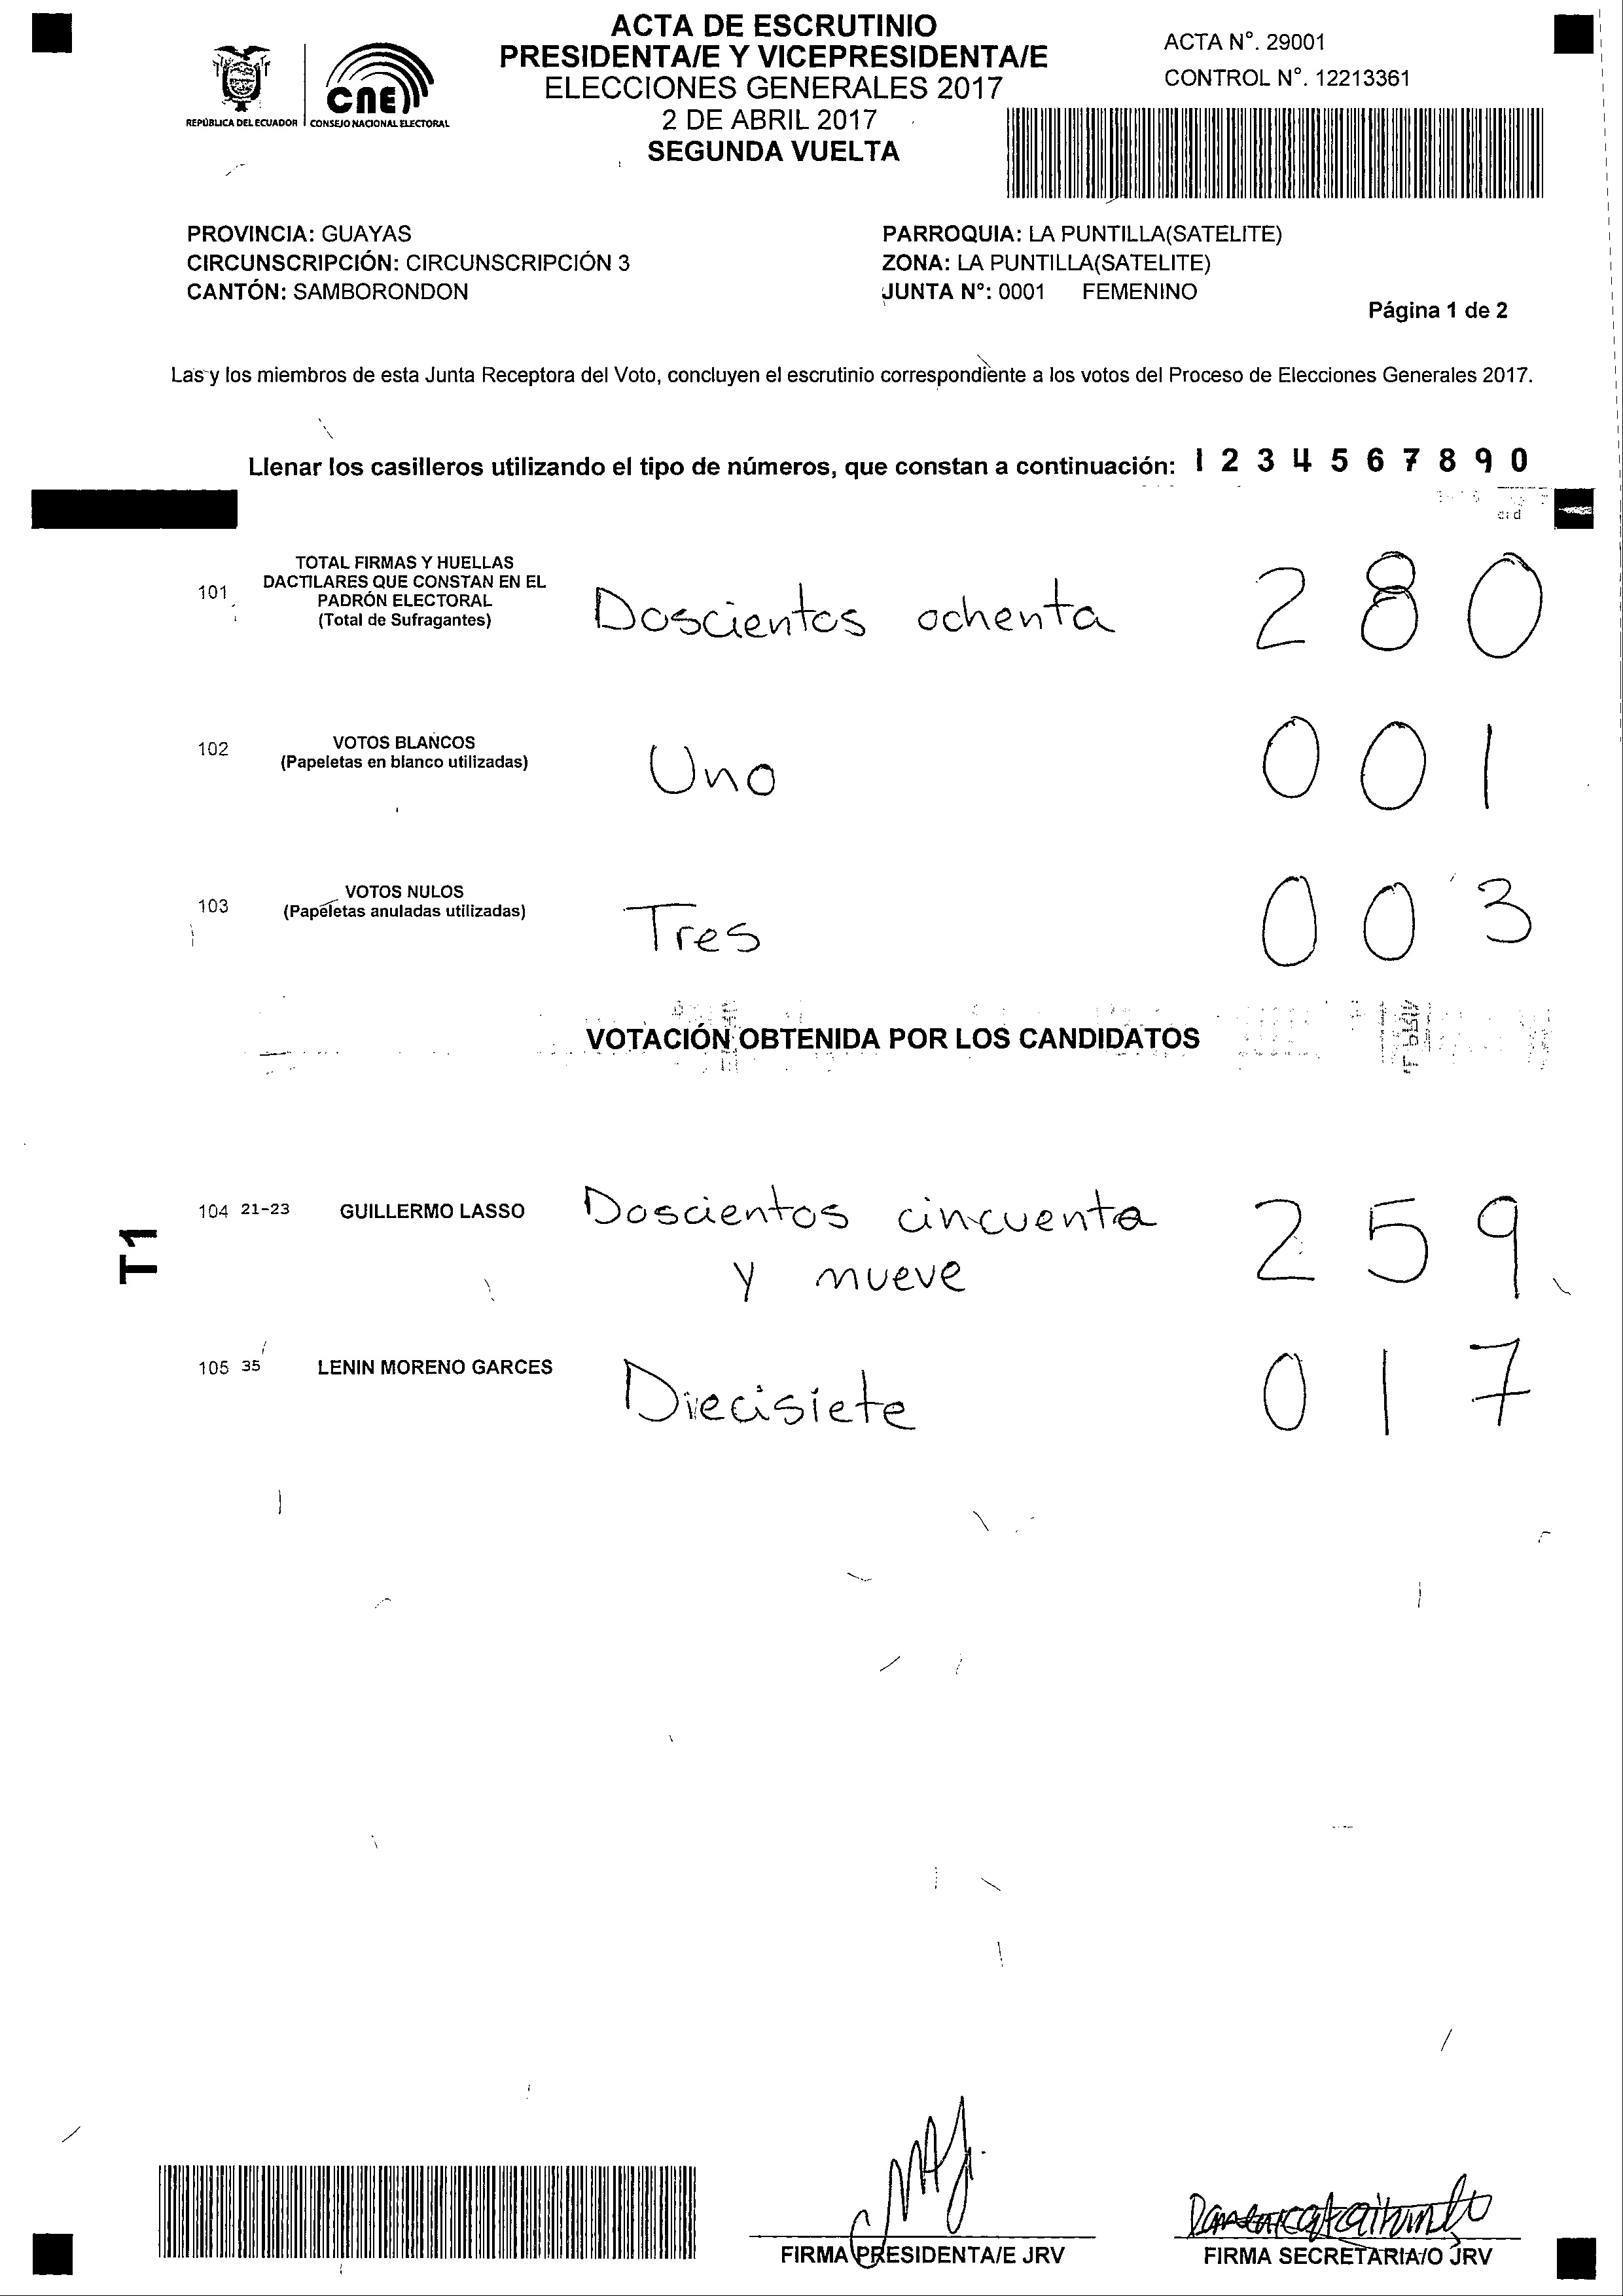 ACTA DE ESCRUTINIO
PRESIDENTA/E Y VICEPRESIDENTA/E
ELECCIONES GENERALES 2017
2 DE ABRIL 2017
SEGUNDA VUELTA
ACTA N°. 29001
CONTROL N°. 12213361
CNE
REPÚBLICA DEL ECUADOR CONSEJO NACIONAL ELECTORAL
PROVINCIA: GUAYAS
CIRCUNSCRIPCIÓN: CIRCUNSCRIPCIÓN 3
CANTÓN: SAMBORONDON
PARROQUIA: LA PUNTILLA(SATELITE)
ZONA: LA PUNTILLA(SATELITE)
JUNTA N°: 0001 FEMENINO
Página 1 de 2
Las y los miembros de esta Junta Receptora del Voto, concluyen el escrutinio correspondiente a los votos del Proceso de Elecciones Generales 2017.
Llenar los casilleros utilizando el tipo de números, que constan a continuación: 1 2 3 4 5 6 7 8 9 0
101 TOTAL FIRMAS Y HUELLAS
DACTILARES QUE CONSTAN EN EL
PADRÓN ELECTORAL
(Total de Sufragantes)
Doscientos ochenta 2 8 0
102 VOTOS BLANCOS
(Papeletas en blanco utilizadas)
Uno 0 0 1
103 VOTOS NULOS
(Papeletas anuladas utilizadas)
Tres 0 0 3
VOTACIÓN OBTENIDA POR LOS CANDIDATOS
T1
104 21-23 GUILLERMO LASSO Doscientos cincuenta 2 5 9
y nueve
105 35 LENIN MORENO GARCES Diecisiete 0 1 7
FIRMA PRESIDENTA/E JRV
FIRMA SECRETARIA/O JRV